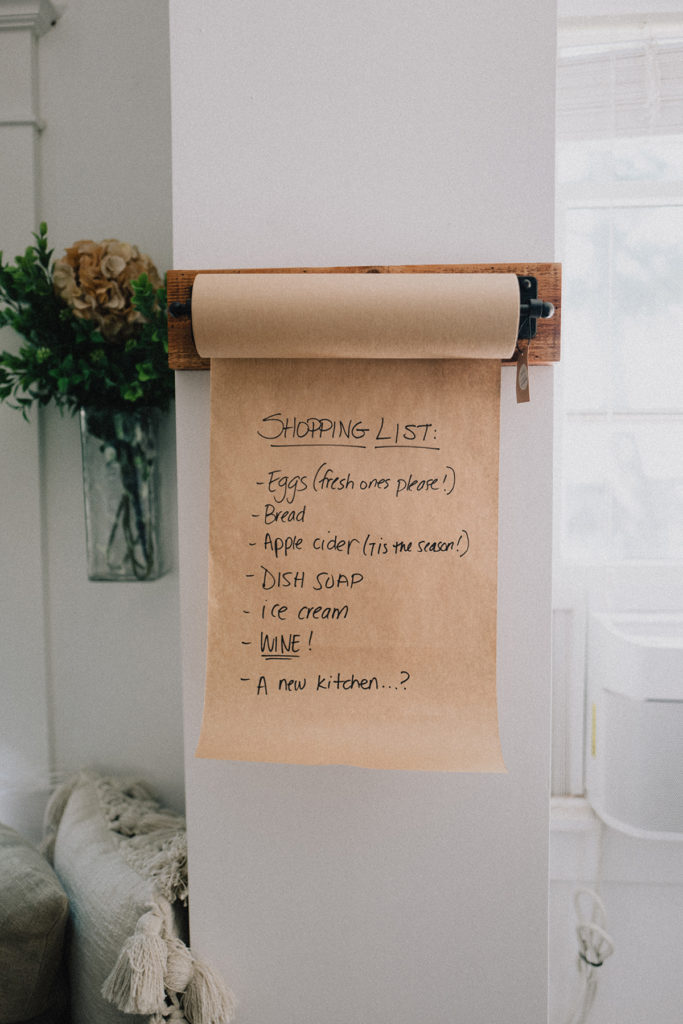 SHOPPING LIST:
- Eggs (fresh ones please!)
- Bread
- Apple cider (Tis the season!)
- DISH SOAP
- ice cream
- WINE!
- A new kitchen...?